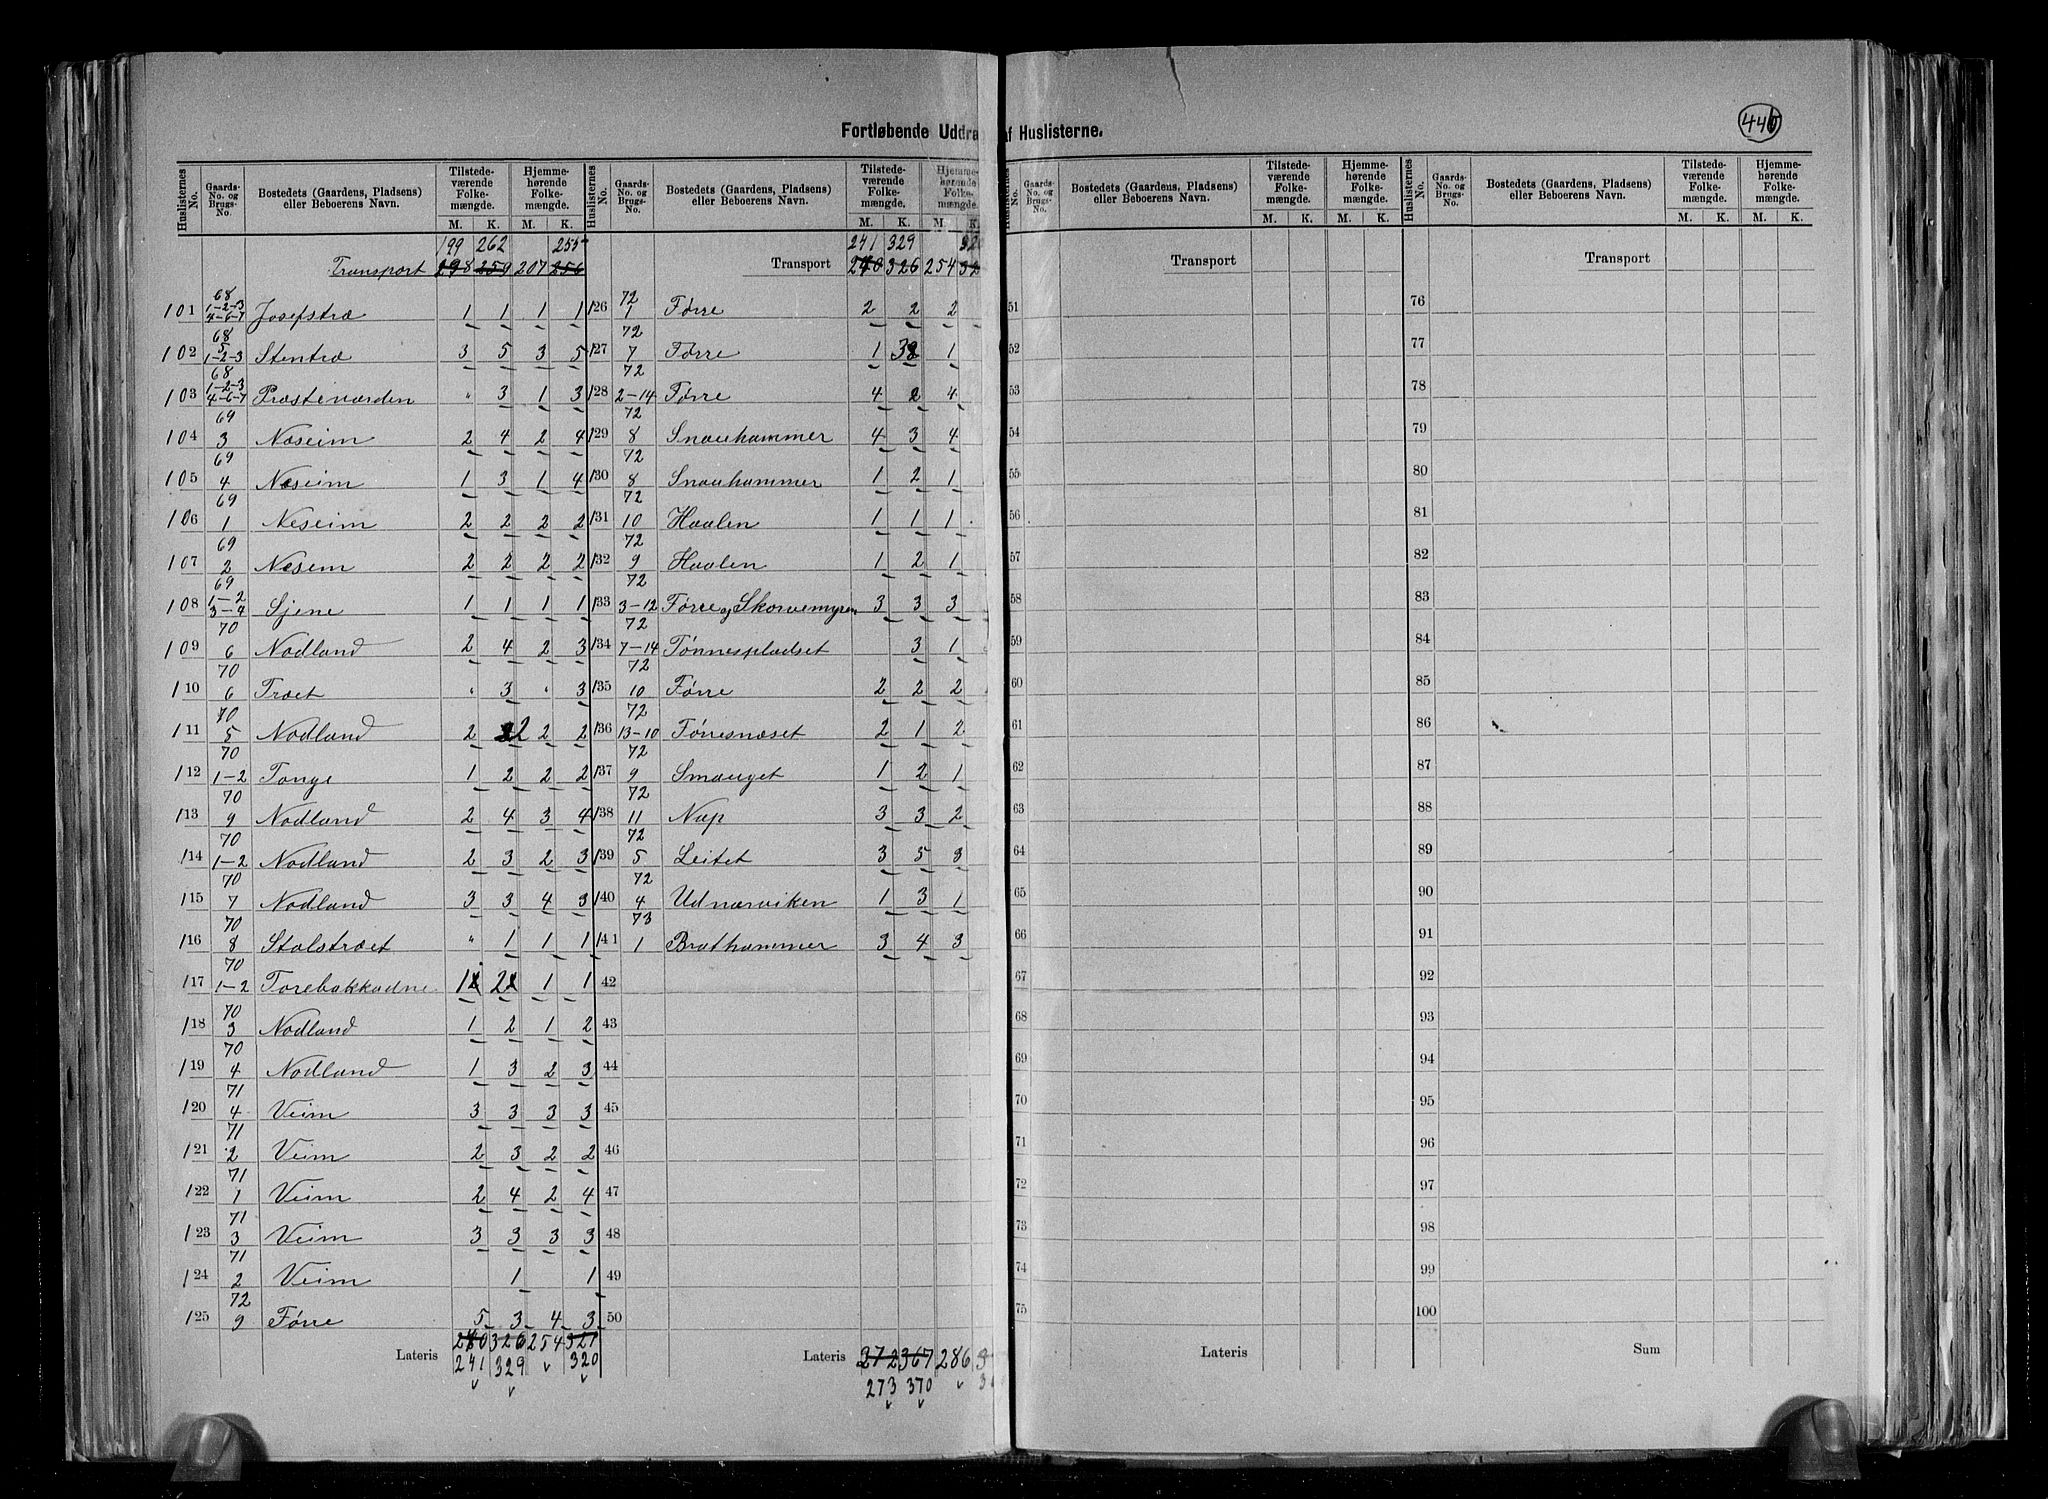 446
Fortløbende Uddra af Huslisterne.
Huslisternes No. Gaards-No. og Brugs-No. Bostedets (Gaardens, Pladsens) eller Beboerens Navn. Tilstede-værende Folke-mængde. M. K. Hjemme-hørende Folke-mængde. M. K.
199 262 255
Transport 198 259 207 256
101 68 1-2-3 4-6-7 Josefstræ 1 1 1 1
102 68 5 1-2-3 Stentræ 3 5 3 5
103 68 1-2-3 4-6-7 Præstevarden " 3 1 3
104 69 3 Næseim 2 4 2 4
105 69 4 Næseim 1 3 1 4
106 69 1 Neseim 2 2 2 2
107 69 2 Næseim 2 2 2 2
108 69 1-2 3-4 Sjene 1 1 1 1
109 70 6 Nodland 2 4 2 3
110 70 6 Træet " 3 " 3
111 70 5 Nodland 2 2 2 2
112 70 1-2 Tange 1 2 2 2
113 70 9 Nodland 2 4 3 4
114 70 1-2 Nodland 2 3 2 3
115 70 7 Nodland 3 3 4 3
116 70 8 Stolstræet " 1 1 1
117 70 1-2 Torebakkadne 1 2 1 1
118 70 3 Nodland 1 2 1 2
119 70 4 Nodland 1 3 2 3
120 71 4 Veim 3 3 3 3
121 71 2 Veim 2 3 2 2
122 71 1 Veim 2 4 2 4
123 71 3 Veim 3 3 3 3
124 71 2 Veim 1 1
125 72 9 Førre 5 3 4 3
Lateris 240 326 254 321
241 329 320
Huslisternes No. Gaards-No. og Brugs-No. Bostedets (Gaardens, Pladsens) eller Beboerens Navn. Tilstede-værende Folke-mængde. M. K. Hjemme-hørende Folke-mængde. M. K.
241 329
Transport 240 326 254
126 72 1 Førre 2 2 2
127 72 7 Førre 1 3 1
128 72 2-14 Førre 4 2 4
129 72 8 Snauhammer 4 3 4
130 72 8 Snauhammer 1 2 1
131 72 10 Haalen 1 1 1
132 72 9 Haalen 1 2 1
133 72 3-12 Førre og Skorvemyren 3 3 3
134 72 7-14 Tønnespladset 3 1
135 72 10 Førre 2 2 2
136 72 13-10 Førresnæset 2 1 2
137 72 9 Smauget 1 2 1
138 72 11 Nap 3 3 2
139 72 5 Leitet 3 5 3
140 72 4 Udnarviken 1 3 1
141 73 1 Brathammer 3 4 3
42
43
44
45
46
47
48
49
50
Lateris 272 367 286
273 370
Huslisternes No. Gaards-No. og Brugs-No. Bostedets (Gaardens, Pladsens) eller Beboerens Navn. Tilstede-værende Folke-mængde. M. K. Hjemme-hørende Folke-mængde. M. K.
Transport
51
52
53
54
55
56
57
58
59
60
61
62
63
64
65
66
67
68
69
70
71
72
73
74
75
Lateris
Huslisternes No. Gaards-No. og Brugs-No. Bostedets (Gaardens, Pladsens) eller Beboerens Navn. Tilstede-værende Folke-mængde. M. K. Hjemme-hørende Folke-mængde. M. K.
Transport
76
77
78
79
80
81
82
83
84
85
86
87
88
89
90
91
92
93
94
95
96
97
98
99
100
Sum